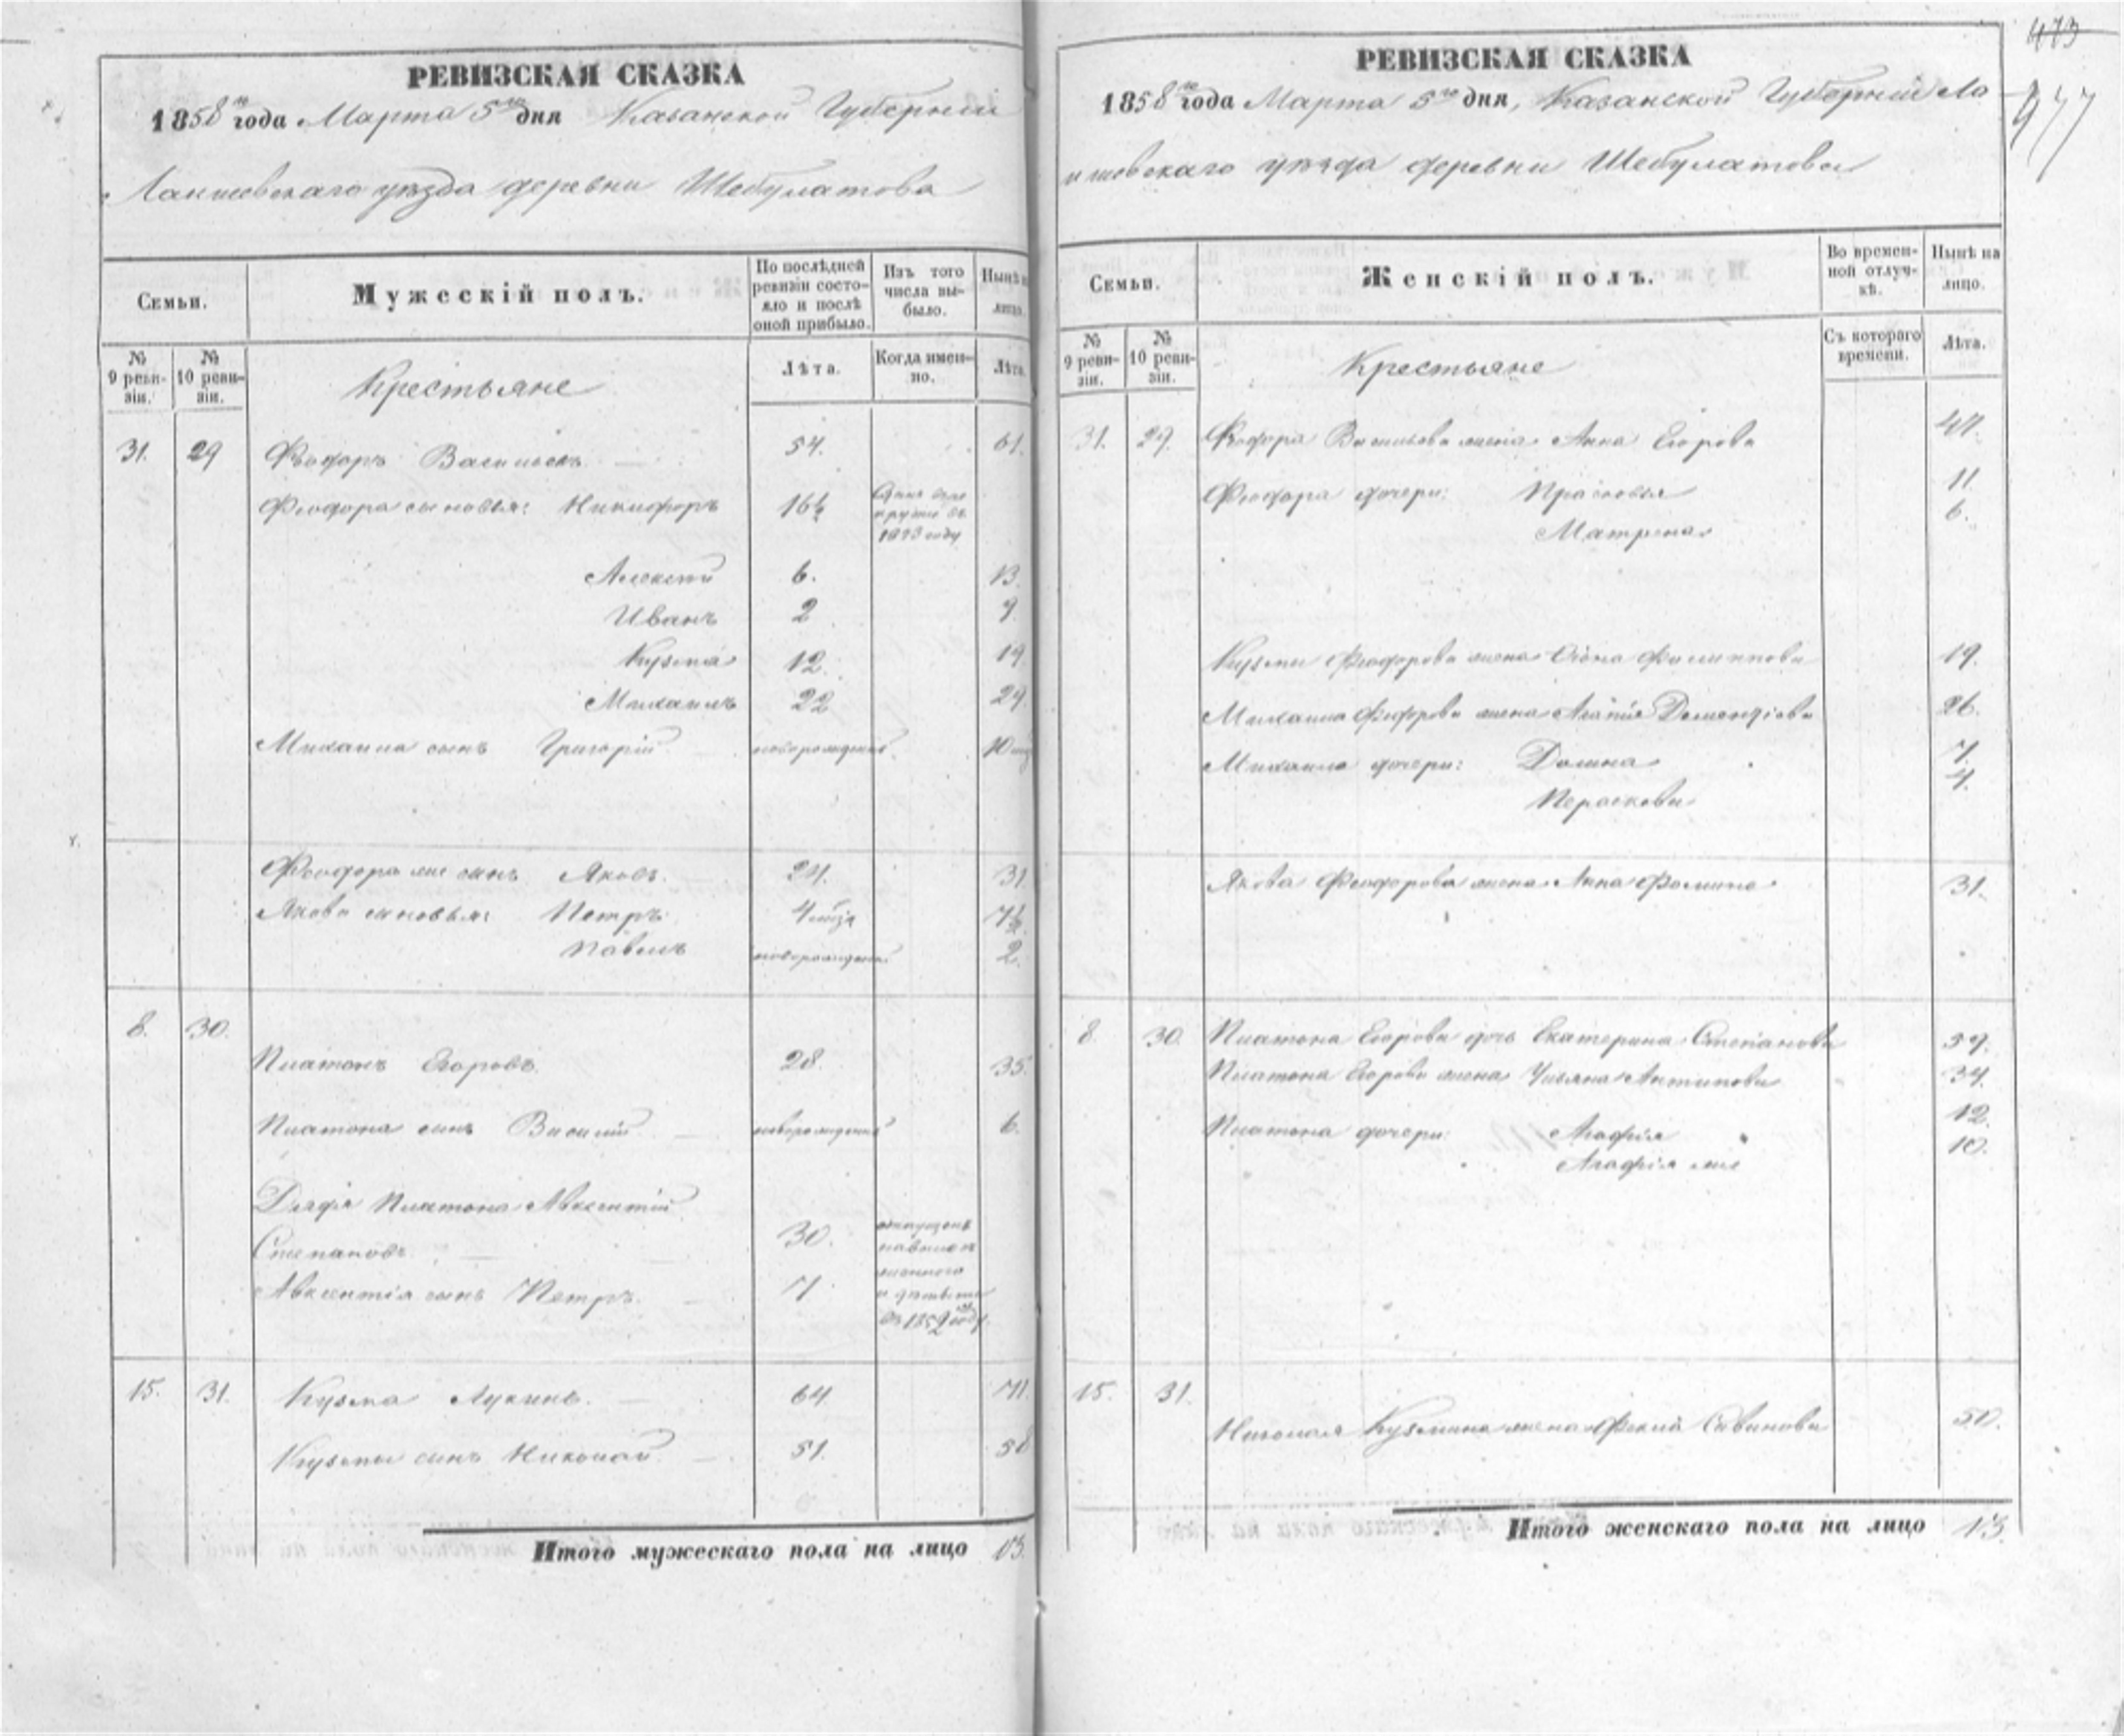 РЕВИЗСКАЯ СКАЗКА
1858го года Марта 5го дня Казанской Губернiи
Лаишевскаго уѣзда деревни Шебулатова
Семьи.
Мужескій полъ.
По послѣдней ревизіи состояло и послѣ оной прибыло.
Изъ того числа выбыло.
Нынѣ на лицо.
№ 9 ревизіи.
№ 10 ревизіи.
Крестьяне
Лѣта.
Когда именно.
Лѣта.
31. 29 Ѳеодоръ Васильевъ 54. 61.
Ѳеодора сыновья: Никифоръ 16½
Алексѣй 6. 13.
Иванъ 2 9.
Кузма 12. 19
Михаилъ 22 29.
Михаила сынъ Григорій новорожденный 10
Ѳеодора же сынъ Яковъ. 24. 31
Якова сыновья: Петръ 4 мѣся 7½
Павелъ новорожденный 2.
8. 30.
Платонъ Егоровъ. 28. 35.
Платона сынъ Василій новорожденный 6.
Дядя Платона Авксентій
Степановъ 30.
Авксентія сынъ Петръ. 7
15. 31. Кузма Лукинъ. 64. 71.
Кузмы сынъ Николай 51. 58
Итого мужескаго пола на лицо 13.
473
477
РЕВИЗСКАЯ СКАЗКА
1858го года Марта 5го дня, Казанской Губерніи Ла
ишевскаго уѣзда деревни Шебулатова
Семьи.
Женскій полъ.
Во временной отлучкѣ.
Нынѣ на лицо.
№ 9 ревизіи.
№ 10 ревизіи.
Крестьяне
Съ котораго времени.
Лѣта.
31. 29. Ѳеодора Васильева жена Анна Егорова 47.
Ѳеодора дочери: Прасковья 11.
Матрена 6.
Кузмы Ѳеодорова жена Филиппова 19.
Михаила Ѳеодорова жена Дементіева 26.
Михаила дочери: Домна 7.
Перасковья 4.
Якова Ѳеодорова жена Анна Фомина 31.
8. 30. Платона Егорова Екатерина Степанова 39.
Платона Егорова жена Ульяна Антипова 34.
Платона дочери: Агафія 12.
Агафія же 10.
15. 31.
Николая Кузмина жена Савинова 50.
Итого женскаго пола на лицо 13.